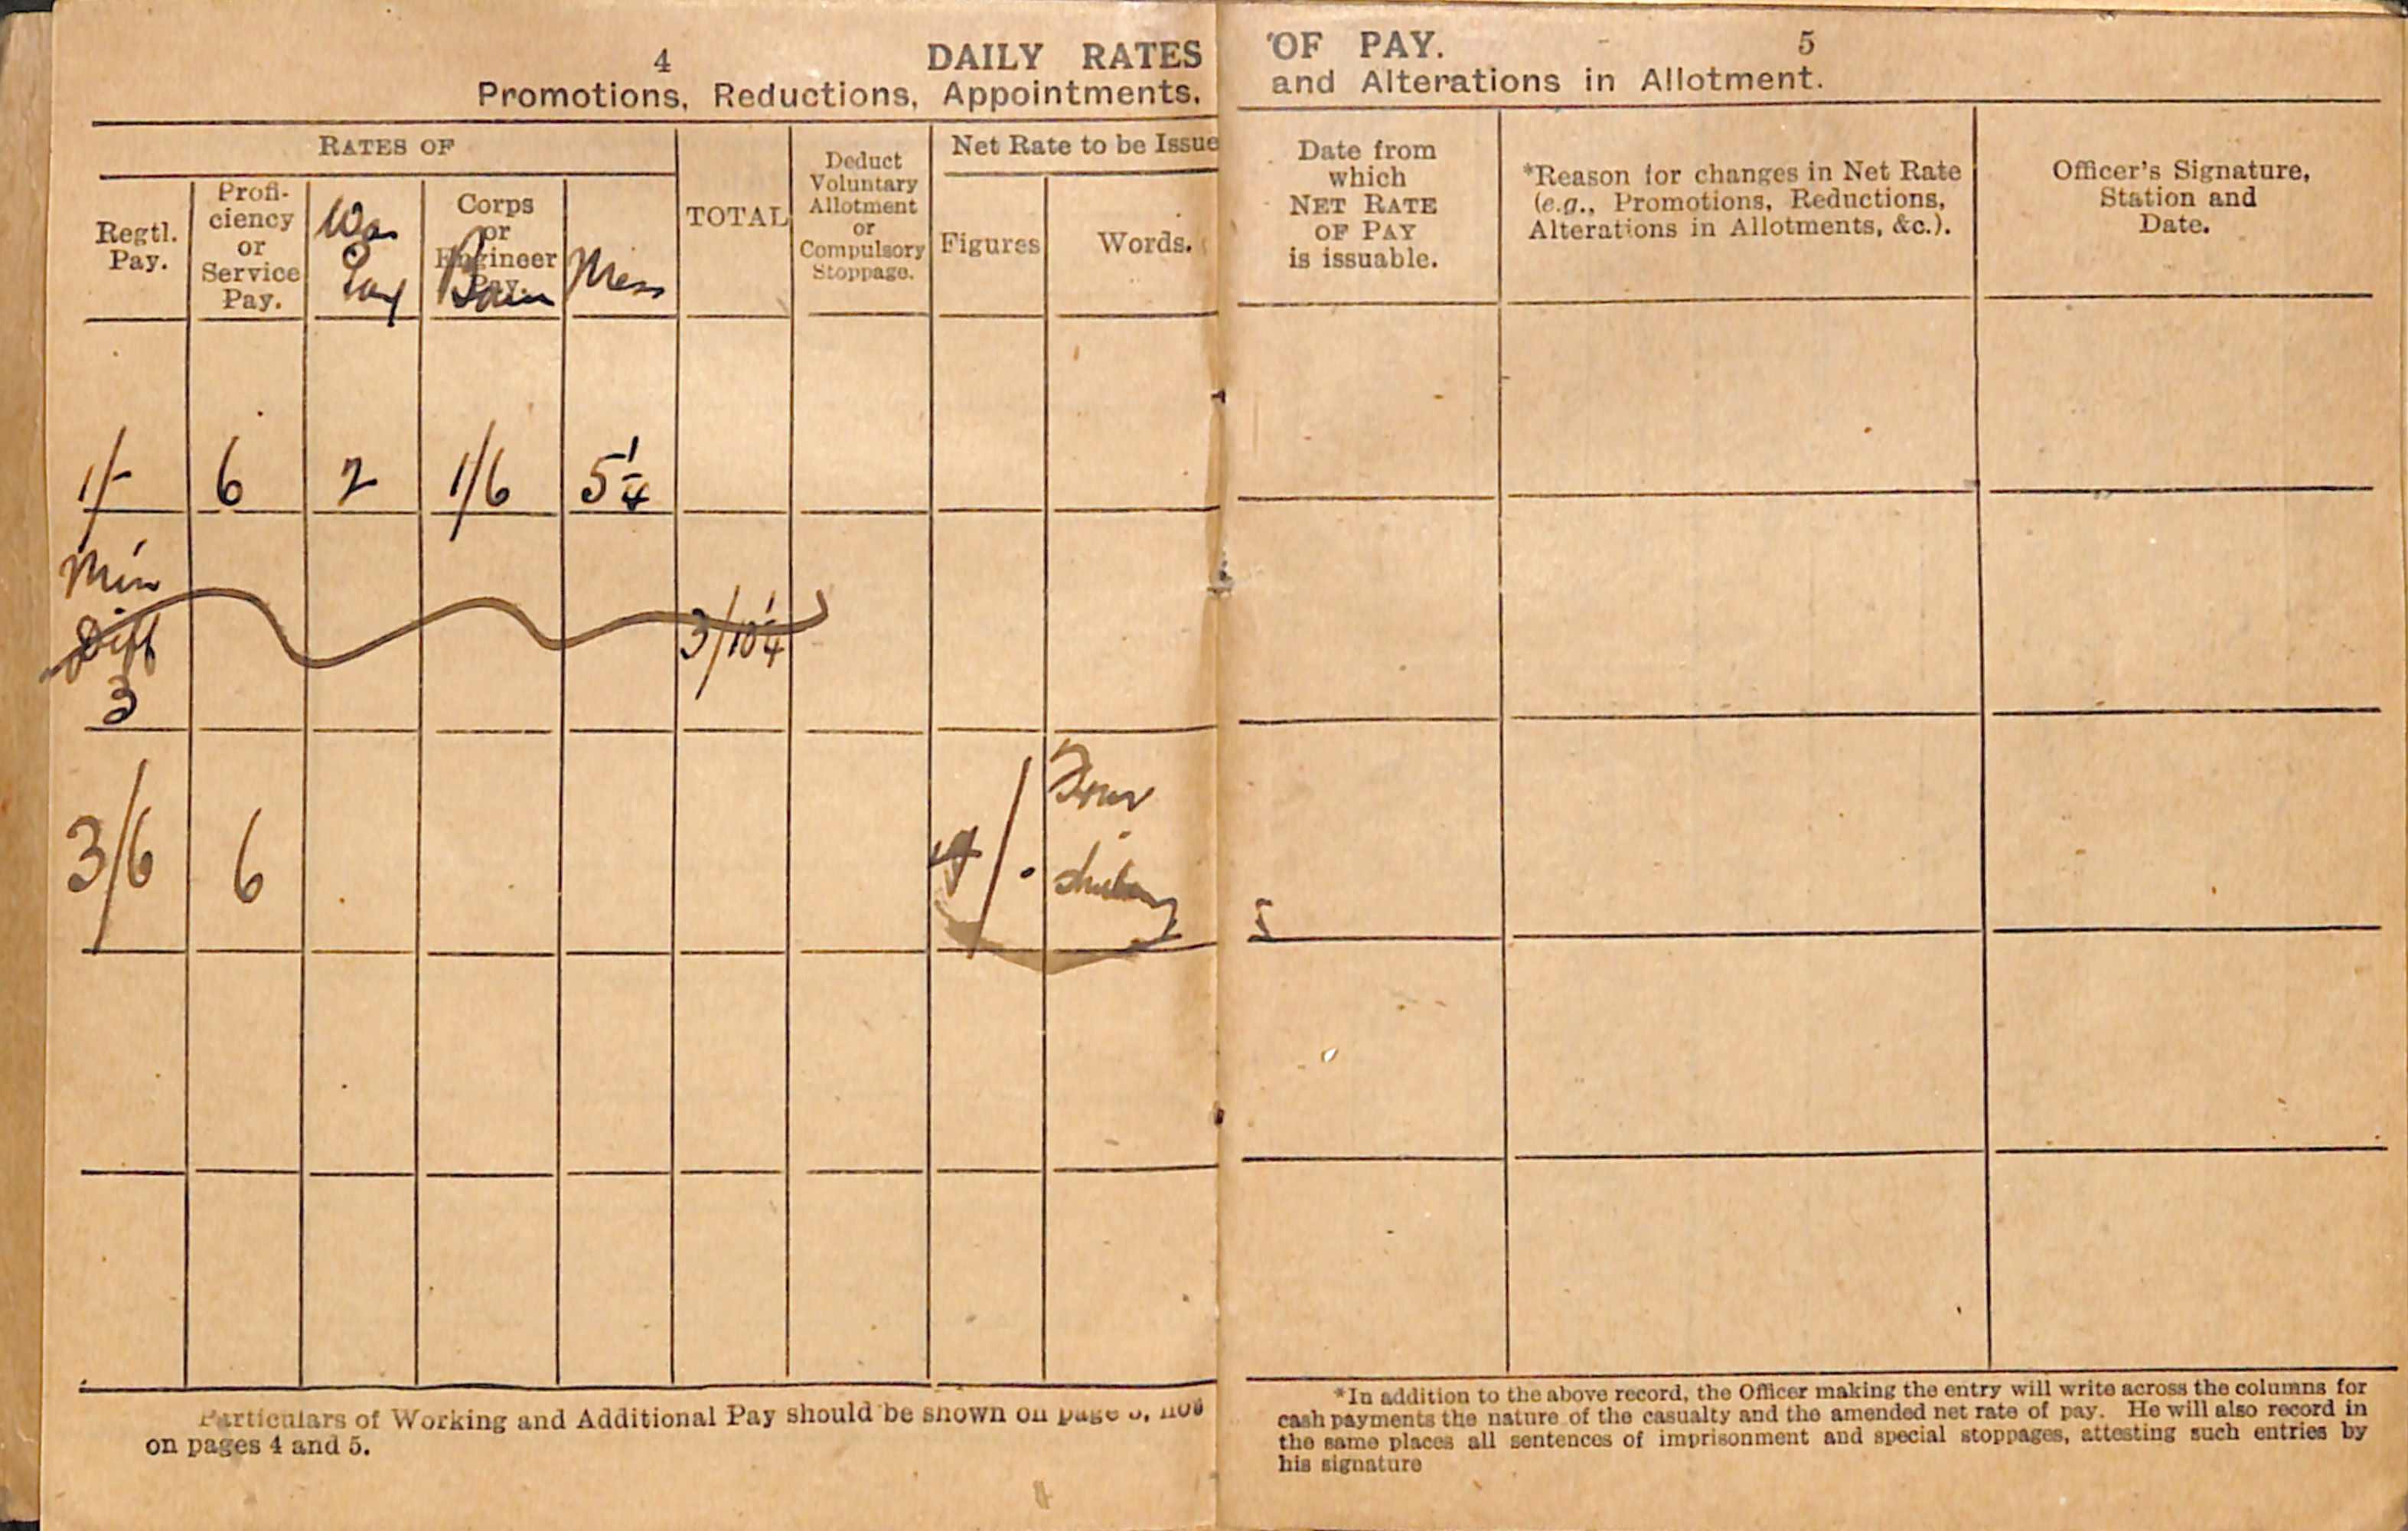 4 DAILY RATES
Promotions, Reductions, Appointments,
RATES OF
Regtl. Pay.
Profi-
ciency
or
Service
Pay.
War
Pay
Corps
or
Engineer
Pay.
Mess
TOTAL
Deduct
Voluntary
Allotment
or
Compulsory
Stoppage.
Net Rate to be Issue
Figures
Words.
1/- 6 2 1/6 5 1/4
Min
Diff
3
3/10 1/4
3/6 6 4/. Four
on pages 4 and 5.
Particulars of Working and Additional Pay should be shown on page
'OF PAY. 5
and Alterations in Allotment.
Date from
which
NET RATE
OF PAY
is issuable.
*Reason for changes in Net Rate
(e.g., Promotions, Reductions,
Alterations in Allotments, &c.).
Officer's Signature,
Station and
Date.
*In addition to the above record, the Officer making the entry will write across the columns for
cash payments the nature of the casualty and the amended net rate of pay. He will also record in
the same places all sentences of imprisonment and special stoppages, attesting such entries by
his signature